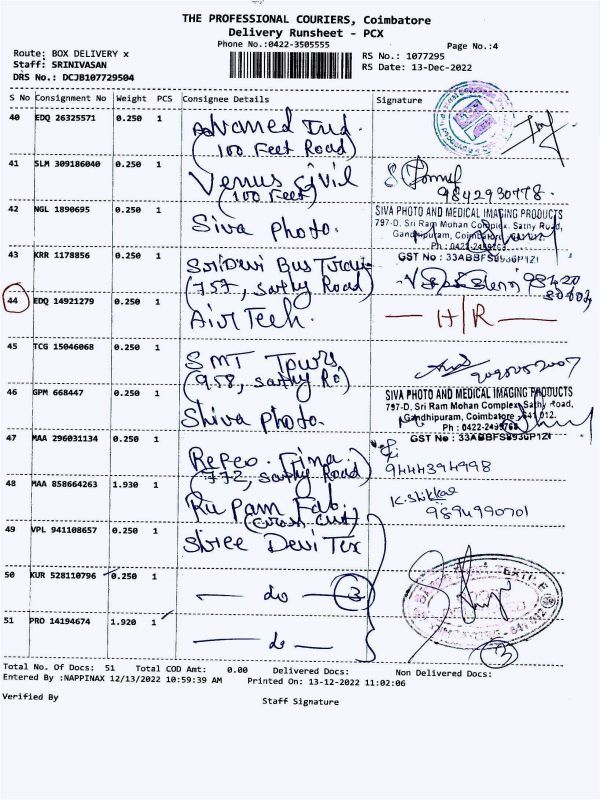 THE PROFESSIONAL COURIERS, Coimbatore
Delivery Runsheet - PCX
Phone No.:0422-3505555
Page No.:4
Route: BOX DELIVERY x
Staff: SRINIVASAN
DRS No.: DCJB107729504
RS No.: 1077295
RS Date: 13-Dec-2022
S No Consignment No Weight PCS Consignee Details Signature
40 EDQ 26325571 0.250 1 Ind.
(100 Feet Road)
41 SLM 309186040 0.250 1 Venus Civil
(100 Feet)
9842930778.
42 NGL 1890695 0.250 1 Siva Photo.
SIVA PHOTO AND MEDICAL IMAGING PRODUCTS
797-D, Sri Ram Mohan Complex, Sathy Road,
Gandhipuram, Coimbatore
Ph : 0422-
GST No : 33ABBFS8936P1ZI
43 KRR 1178856 0.250 1 SriDevi Bus
(757, Sathy Road)
44 EDQ 14921279 0.250 1 AirTech.
H/R
45 TCG 15046068 0.250 1 SMT Tours
(958, Sathy Rd)
46 GPM 668447 0.250 1 Shiva Photo.
SIVA PHOTO AND MEDICAL IMAGING PRODUCTS
797-D, Sri Ram Mohan Complex, Sathy Road,
Gandhipuram, Coimbatore - 641 012.
Ph : 0422-
GST No : 33ABBFS8936P1ZI
47 MAA 296031134 0.250 1 Repco
(772, Sathy Road)
9444394998
48 MAA 858664263 1.930 1 Rupam Fab
(Cross Cut)
9894990701
49 VPL 941108657 0.250 1 Shree Devi Tex
50 KUR 528110796 0.250 1 do 3
51 PRO 14194674 1.920 1 do
3
Total No. Of Docs: 51 Total COD Amt: 0.00 Delivered Docs: Non Delivered Docs:
Entered By :NAPPINAX 12/13/2022 10:59:39 AM Printed On: 13-12-2022 11:02:06
Verified By
Staff Signature